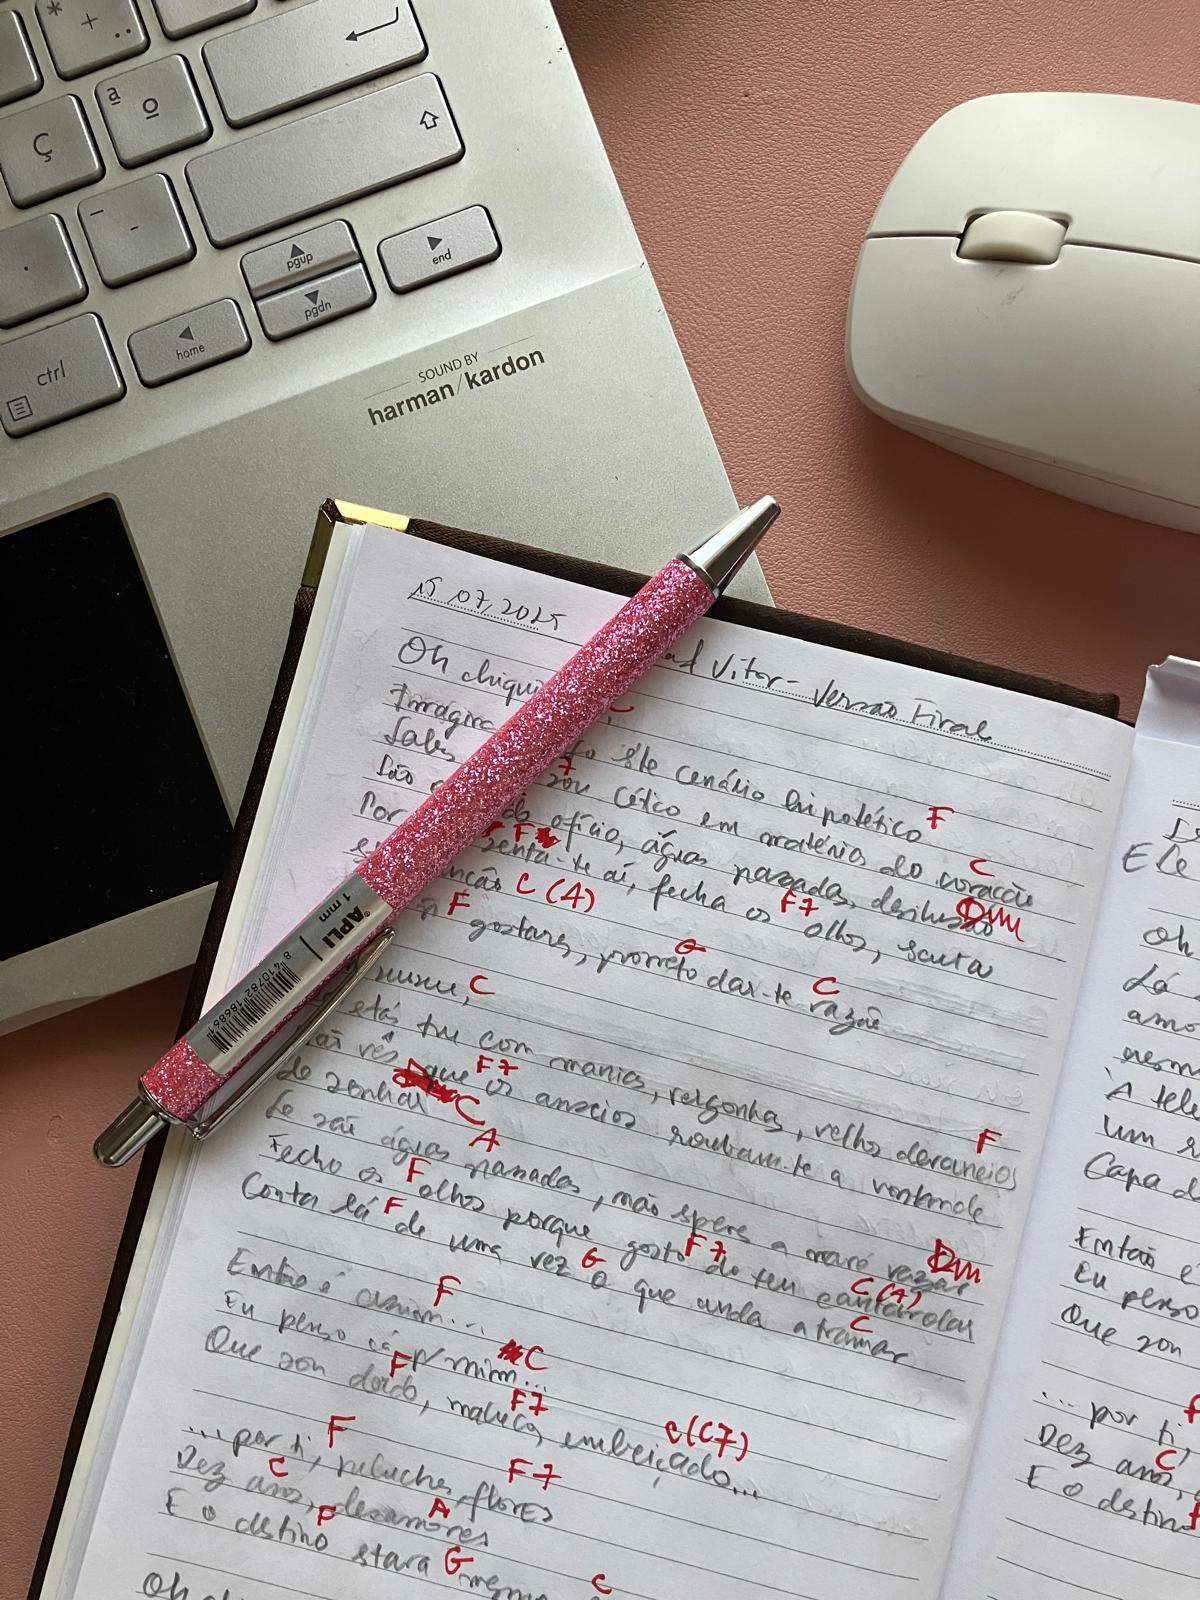 * + ..
ª º
Ç
- -
.
pgup
end
pgdn
home
ctrl
SOUND BY
harman/kardon
15 07, 2025
Vitor - Versão Final
Oh
C
este cenário hipotético
F
7
sou cético em matéria do coração
C
do ofício, águas passadas, desilusão
F
Dm
Por senta-te aí, fecha os olhos, escuta
C (A) F7
F G C
gostares, prometo dar-te razão
C
estás tu com manias, vergonha, velhos devaneios
F7 F
vês que os anseios roubam-te a vontade
de sonhar
C
A
Se são águas passadas, não spere a maré vazar
F F7 Dm
Fecho os olhos porque gosto do teu cantarolar
F G C (A)
Conta lá de uma vez o que anda a tramar
C
Então é assim...
F
Eu penso cá p/ mim...
C
Que sou doido, maluco, embeiçado...
F F7 C (C7)
... por ti, peluches, flores
F F7
Dez anos, desamores
C A
E o destino stara mesmo
F G C
Oh
APLI
1 mm
8 410782 186861
Ele
Oh
Lá
amo
mesm
À tele
um s
Capa d
Então é
Eu penso
Que sou
... por ti,
F
Dez anos,
C
E o destino